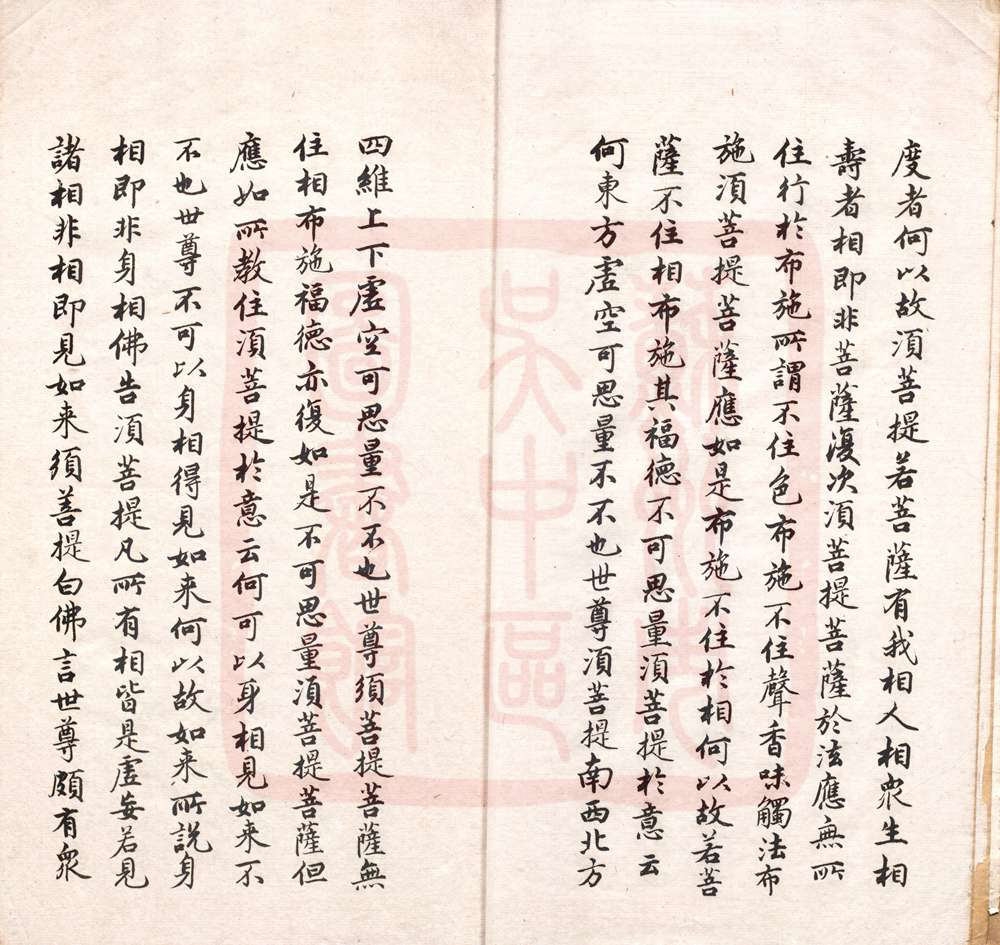 度者何以故須菩提若菩薩有我相人相衆生相
壽者相即非菩薩復次須菩提菩薩於法應無所
住行於布施所謂不住色布施不住聲香味觸法布
施須菩提菩薩應如是布施不住於相何以故若菩
薩不住相布施其福德不可思量須菩提於意云
何東方虛空可思量不不也世尊須菩提南西北方
四維上下虛空可思量不不也世尊須菩提菩薩無
住相布施福德亦復如是不可思量須菩提菩薩但
應如所教住須菩提於意云何可以身相見如来不
不也世尊不可以身相得見如来何以故如来所說身
相即非身相佛告須菩提凡所有相皆是虛妄若見
諸相非相即見如来須菩提白佛言世尊頗有衆